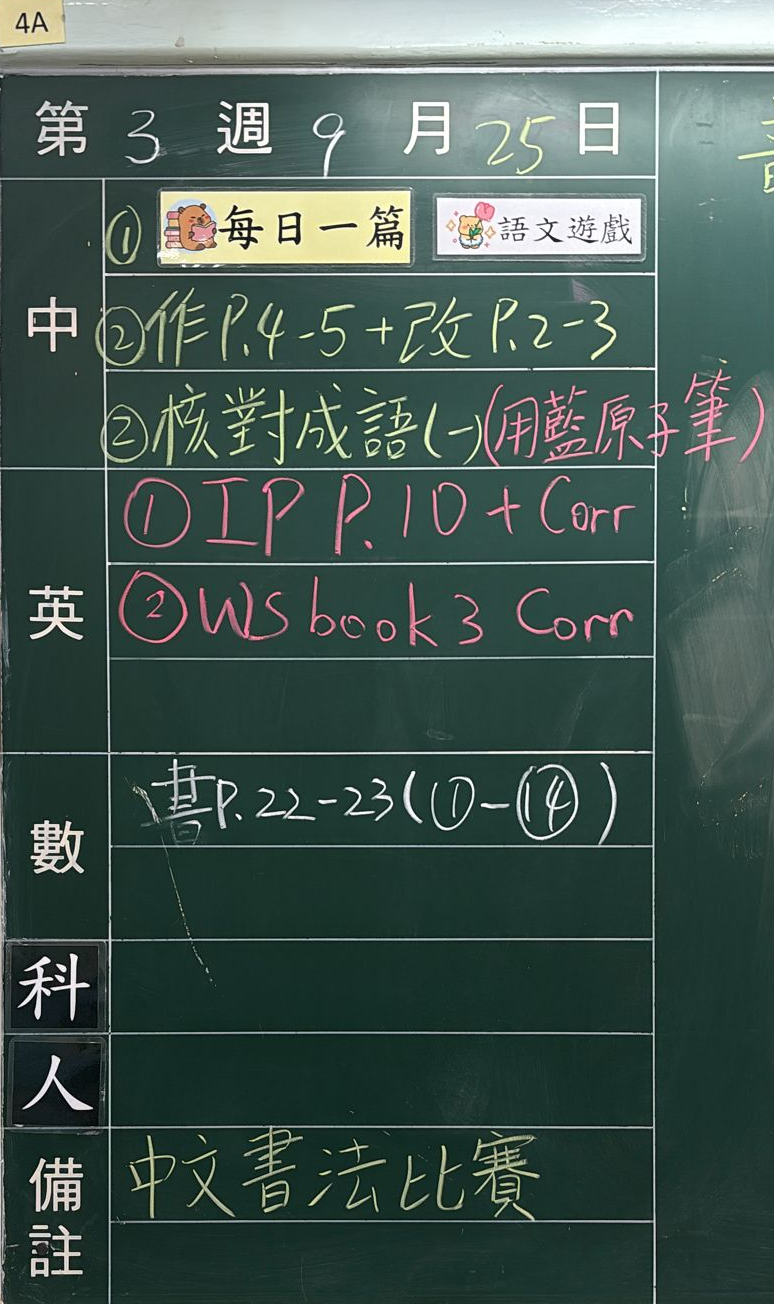 4A
第 3 週 9 月 25 日
中
① 每日一篇 語文遊戲
②作P.4-5+改P.2-3
②核對成語(一)(用藍原子筆)
英
①IP P.10+Corr
②WS book 3 Corr
數
書P.22-23(①-⑭)
科
人
備註
中文書法比賽